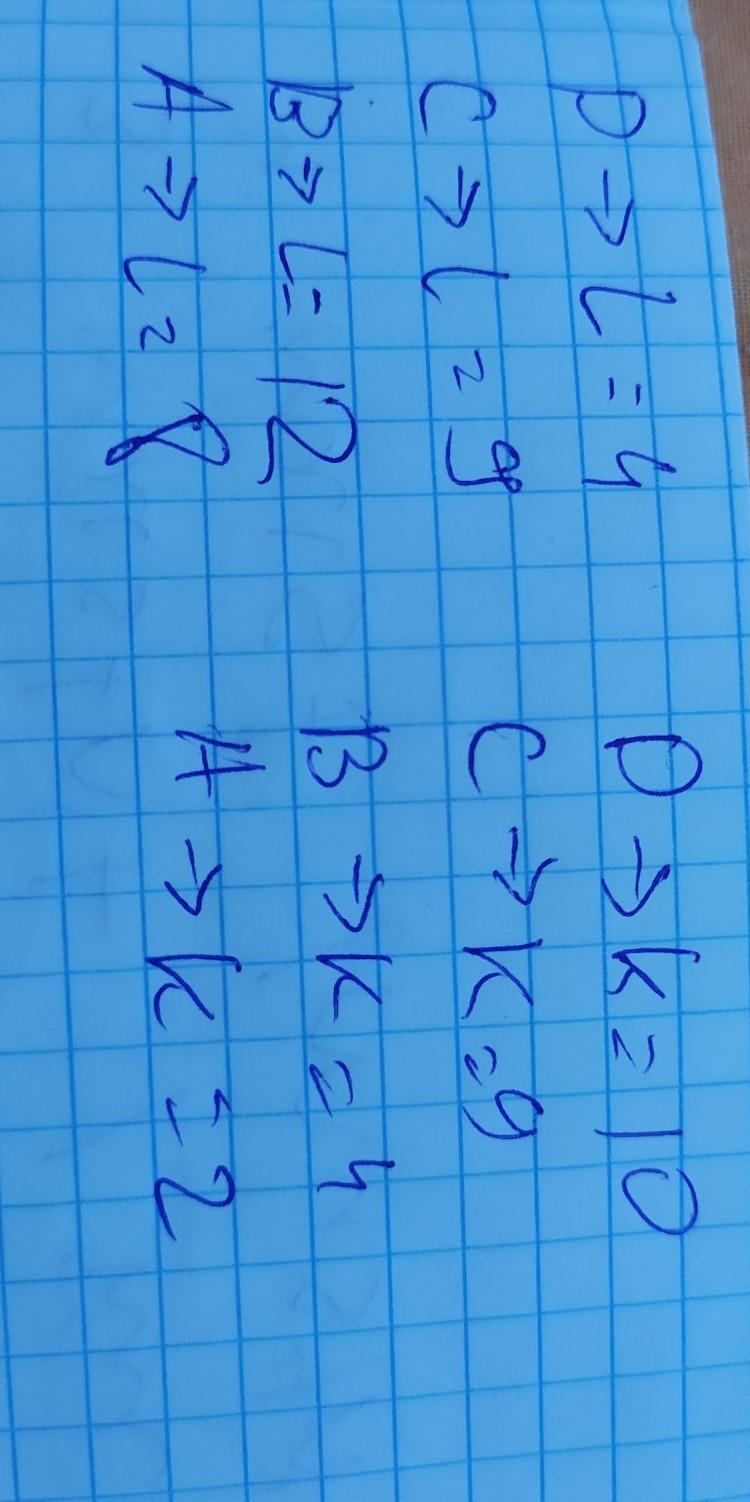 D → L = 4 D → k = 10
C → L = 9 C → K = 9
B → L = 12 B → K = 4
A → L = 8 A → K = 2